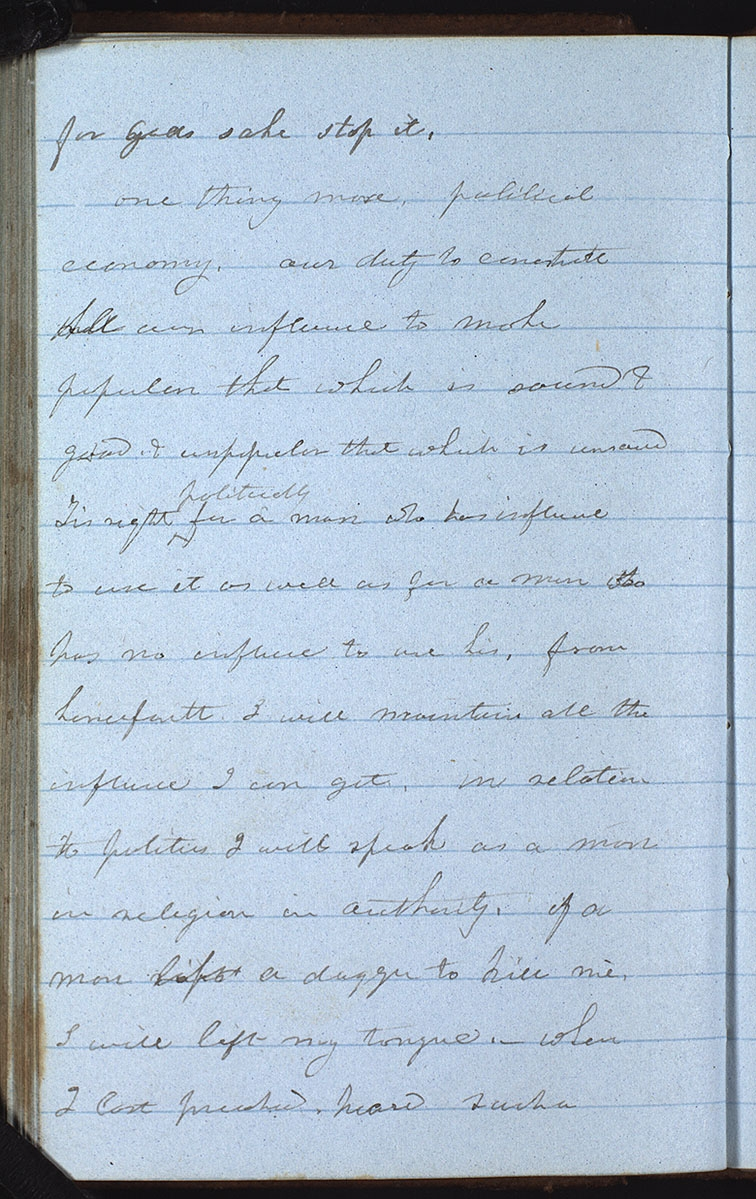 for gods sake stop it.
one thing more, political
economy. our duty to concentrate
all our influence to make
popular that which is sound &
good & unpopular that which is unsound
Tis right politically for a man who has influence
to use it as well as for a man who
has no influence to use his. from
henceforth I will maintain all the
influence I can get. in relation
to politics I will speak as a man
in religion in authority. if a
man lifts a dagger to kill me,
I will lift my tongue.— when
I last preached. heard such a